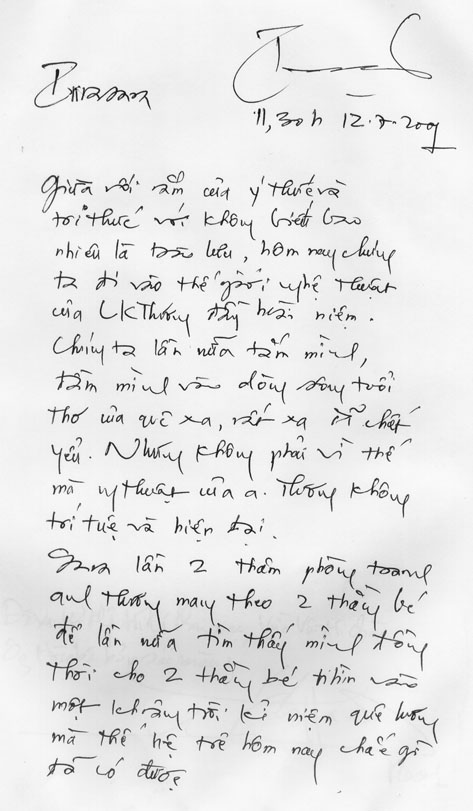 11,30h 12.7.2009
Giữa vời sắm của ý thức và
tri thức với không biết bao
nhiêu là trào lưu, hôm nay chúng
ta đi vào thế giới nghệ thuật
của LKThương đầy hoài niệm.
Chúng ta lần nữa tắm mình,
đầm mình vào dòng sông tuổi
thơ của quê xa, rất xa chất
yếu. Nhưng không phải vì thế
mà ng thuật của a. Thương không
trí tuệ và hiện đại.
lần 2 thăm phòng tranh
quê hương mang theo 2 thằng bé
để lần nữa tìm thấy mình đồng
thời cho 2 thằng bé nhìn vào
một khoảng trời kỉ niệm quê hương
mà thế hệ trẻ hôm nay chắc gì
đã có được